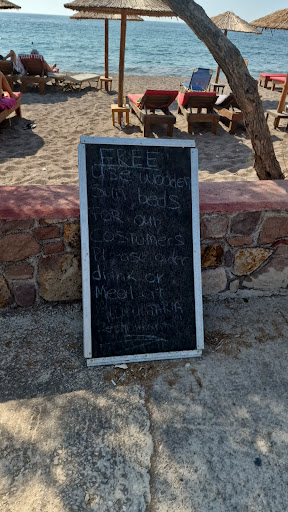 FREE
Use wooden
sun beds
FOR our
Costumers
Please order
drink or
Meal at